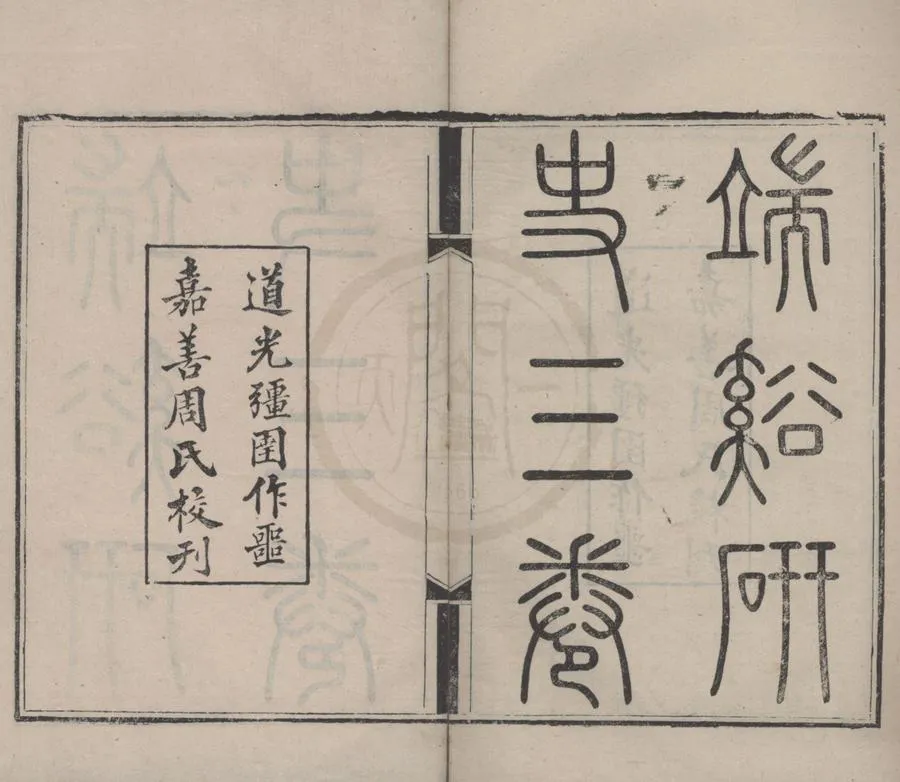 端谿研
史三卷
道光彊圉作噩
嘉善周氏校刊